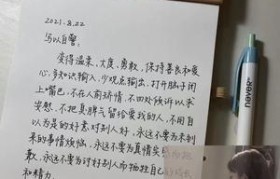 2021.8.22
与以自警。
变得温柔、大度、勇敢，保持善良和爱
心，多知识输入，少观点输出，打开脑子闭
上嘴巴，不在人前矫情，不四处诉说以求
安慰，不把臭脾气留给爱我的人，不用自
以为是的好意对别人好，永远不要为未到
来的事情烦恼，永远不要为真情
歉，永远不要为讨好别人而牺牲自己
和精力
naver